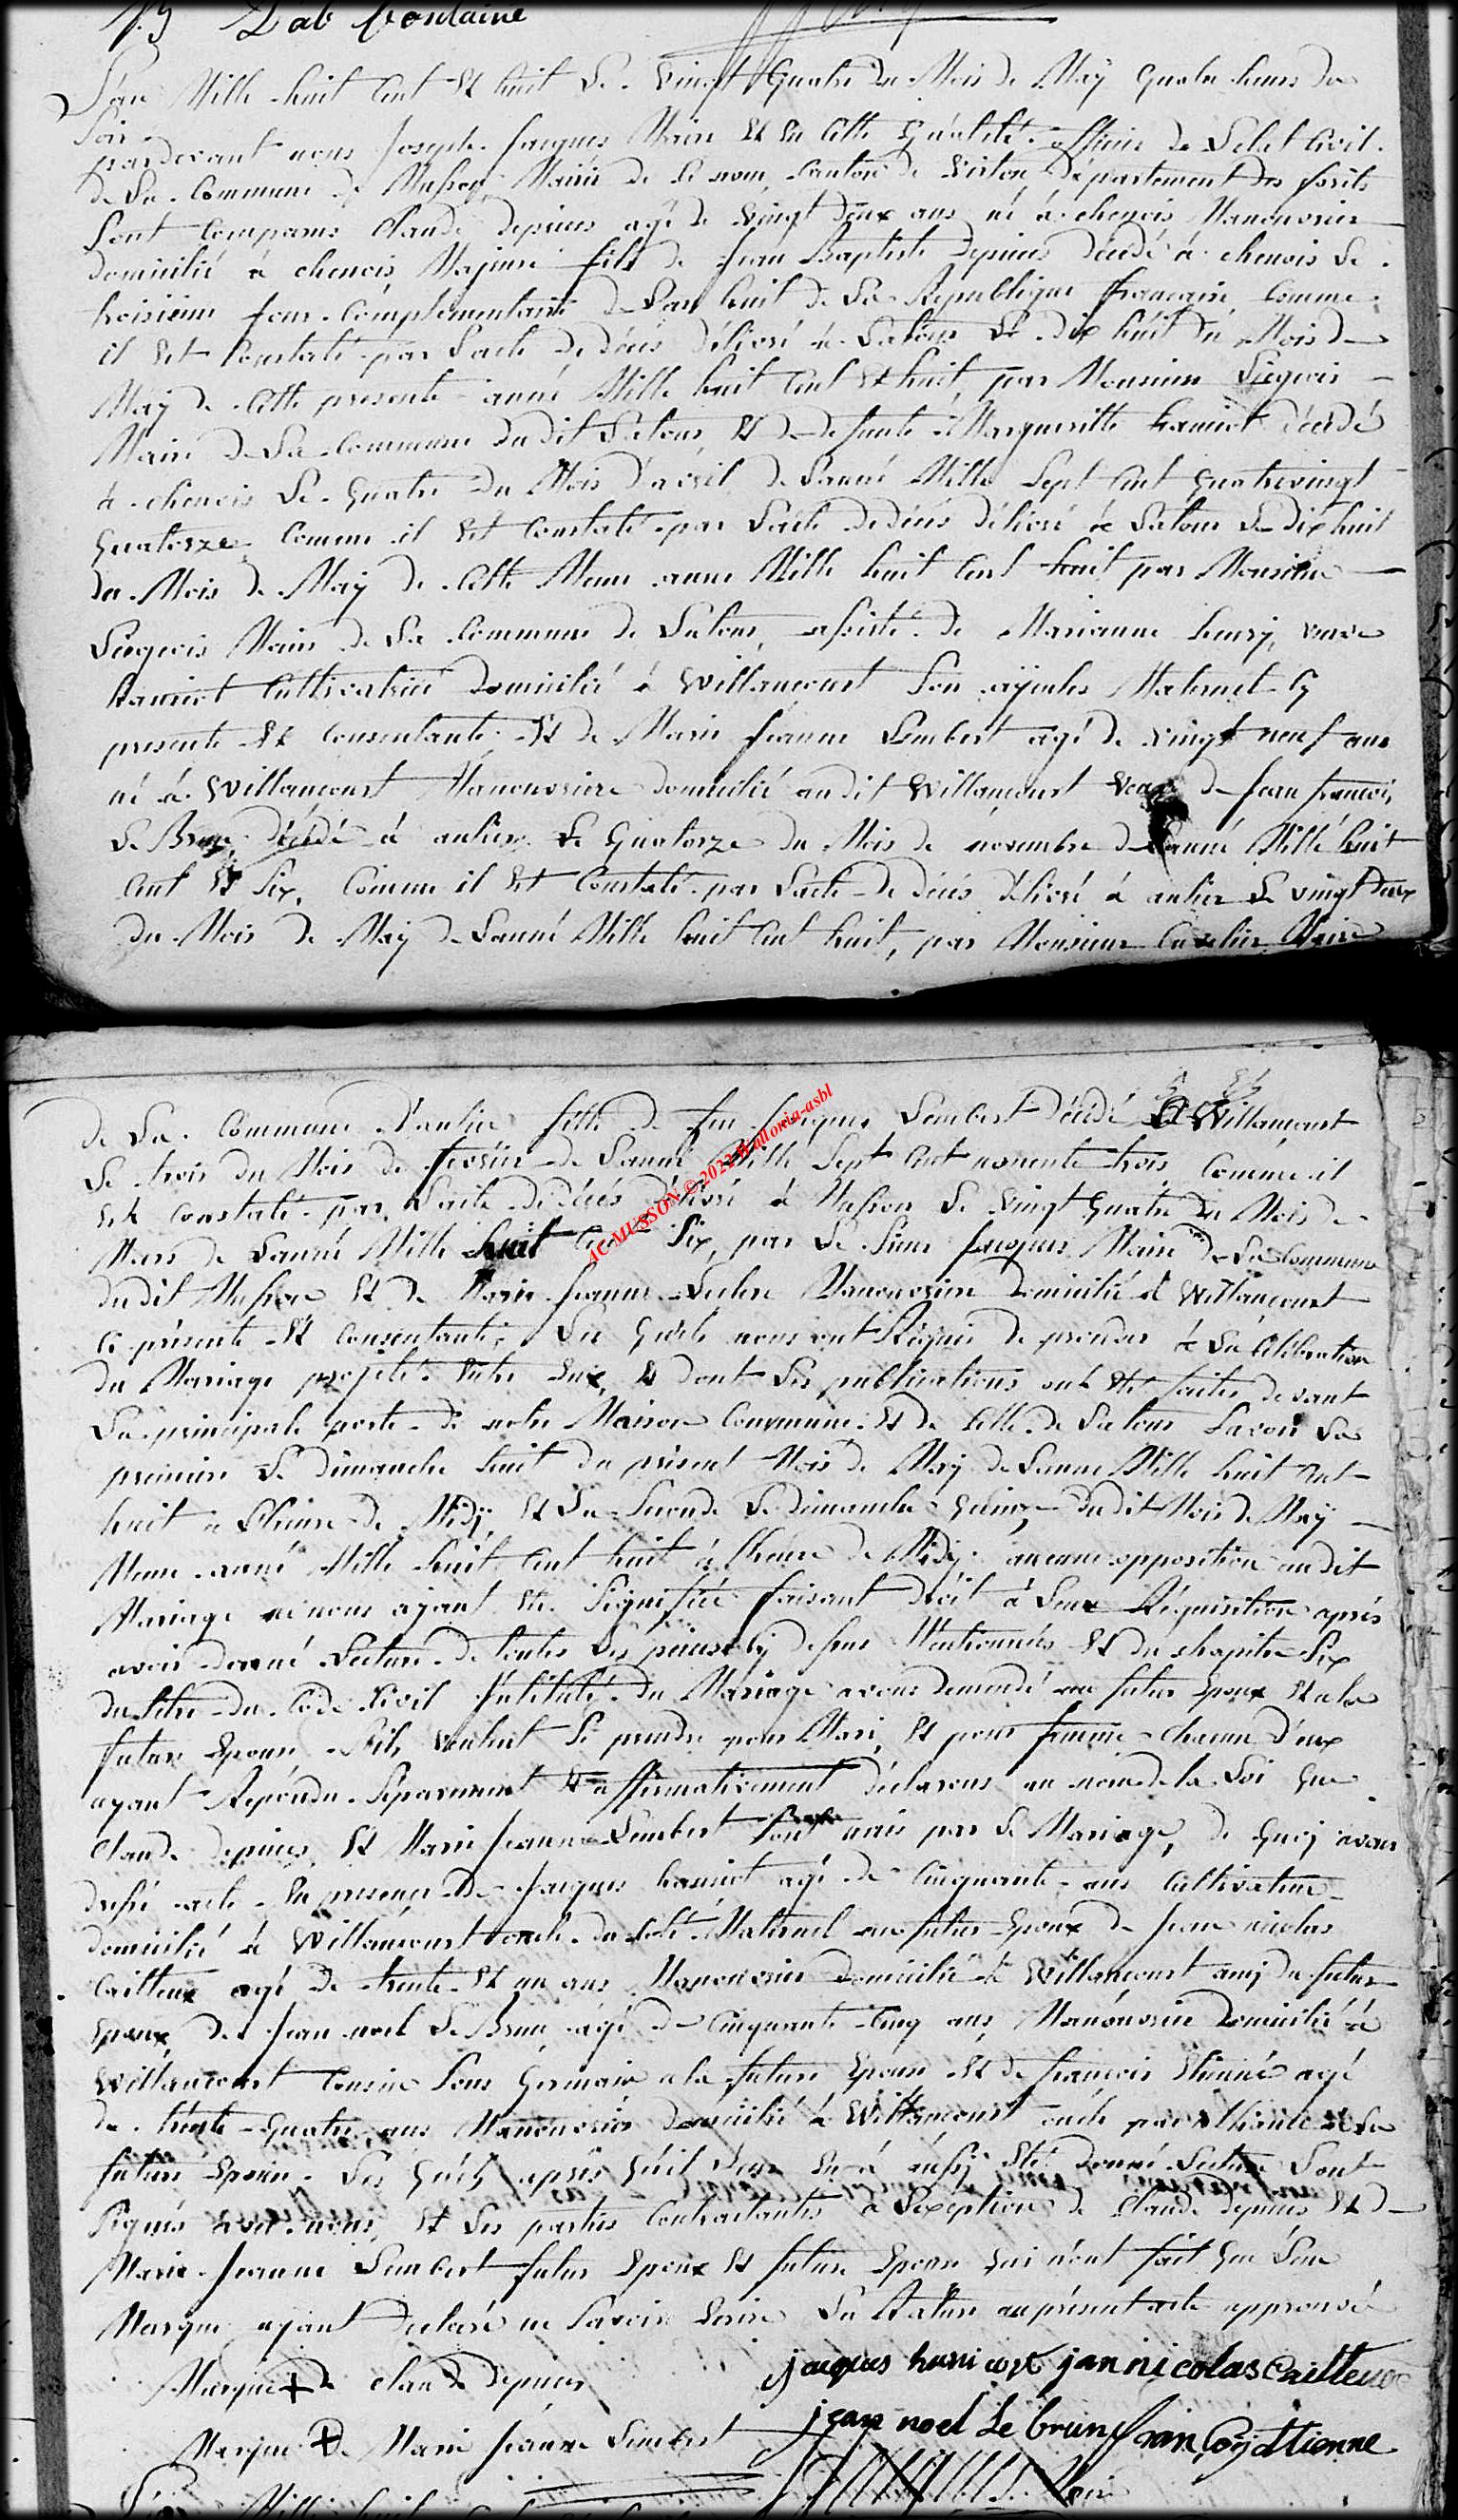 Lab fontaine
L'an Mille huit Cent et huit Le vingt Quatre du Mois de May Quatre heures du
Soir
pardevant nous Joseph Jacques Maire et en Cette Qualité officier de L'etat Civil
de La Commune de Musson Mairie de Ce nom, Canton de Virton, département des forêts
Sont Comparus Claude depuies agé de vingt deux ans né à chenois Manouvrier
domicilié à chenois, Majeure fils de Jean Baptiste depuies décédé à chenois Le
troisième Jour Complementaire de L'an huit de La Republique française, Comme
il est Constaté par L'acte de décés délivré à Latour Le dix huit du Mois de
May de Cette presente année Mille huit Cent et huit, par Monsieur Liegeois
Maire de La Commune dudit Latour et de defunte Margueritte hanicot décédé
à chenois Le Quatre du Mois d'avril de L'année Mille Sept Cent Quatrevingt
Quatorze, Comme il est Constaté par L'acte de décés délivré à Latour Le dix huit
du Mois de May de Cette Meme anne Mille huit Cent huit par Monsieur
Liegeois Maire de La Commune de Latour, assisté de Marianne henry, veuve
hanicot Cultivatrice domicilié à Willancourt Son ayeules Maternel Cy
presente et Consentante et de Marie Jeanne Lembert agé de vingt neuf ans
né à Willancourt Manouvriere domicilié audit Willancourt veuve de Jean françois
Le Brun décédé à anlier Le Quatorze du Mois de novembre de L'année Mille huit
Cent et Six, Comme il est Constaté par L'acte de décés délivré à anlier Le vingt deux
du Mois de May de L'anné Mille huit Cent huit, par Monsieur Cavelier Maire
de La Commune d'anlier fille de feu Jacques Lembert décédé à Willancourt
Le trois du Mois de fevrier de L'anné Mille Sept Cent nonente trois, Comme il
est Constaté par L'acte de décés délivré à Musson Le vingt Quatre du Mois de
Mars de L'année Mille huit Cent Six, par Le Sieur Jacques Maire de La Commune
dudit Musson et de Marie Jeanne Leclere Manouvriere domicilié à Willancourt
Ci présente et Consentante; Les Quels nous ont Requis de proceder à La Célébration
du Mariage projetté entre eux, et dont Les publications ont été faites devant
La principale porte de notre Maison Commune et de Celle de Latour Savoir La
premiere Le dimanche huit du présent Mois de May de L'anne Mille huit Cent
huit a L'heure de Midy, et La Seconde Le dimanche Quinze dudit Mois de May
Meme anné Mille huit Cent huit à L'heure de Midy aucune opposition audit
Mariage ne nous ayant eté Signifiée faisant droit à Leur Réquisition après
avoir donné Lecture de toutes Les pièces Cy dessus Mentionnées et du chapitre Six
du titre du Code Civil Intitulé du Mariage avons demandé au futur Epoux et a la
future Epouse S'ils veulent Se prendre pour Mari et pour femme chacun d'eux
ayant Répondu Séparement et affirmativement déclarons au nom de la Loi Que
Claude depuies et Marie Jeanne Lembert Sont unis par Le Mariage, de Quoy avons
dressé acte En presence de Jacques hanicot agé de Cinquante ans Cultivateur
domicilié à Willancourt oncle du Coté Maternel au futur Epoux de Jean nicolas
Cailteux agé de trente et un ans Manouvrier domicilié à Willancourt amy du futur
Epoux, de Jean noel Le Brun agé de Cinquante Cinq ans, Manouvrier domicilié à
Willancourt Cousin Sous Germain a la future Epouse et de françois Etienne agé
de trente Quatre ans Manouvrier domicilié à Willancourt oncle par alliance à La
future Epouse. Les Quels après Qu'il Leur En à aussy Eté donné Lecture L'ont
Signés avec nous, et Les parties Contractantes à L'exception de Claude depuies et de
Marie Jeanne Lembert futur Epoux et future Epouse Qui n'ont fait Que Leur
Marque ayant declaré ne Savoir Ecrire La Rature au présent acte approuvé
Marque + de Claude depuies
jacques hanicot jannicolas Cailteux
Marque + de Marie Jeanne Lembert
jean noel Le brun françoy Etienne
Maire
AC-MUSSON © 2022 Wallonia-asbl